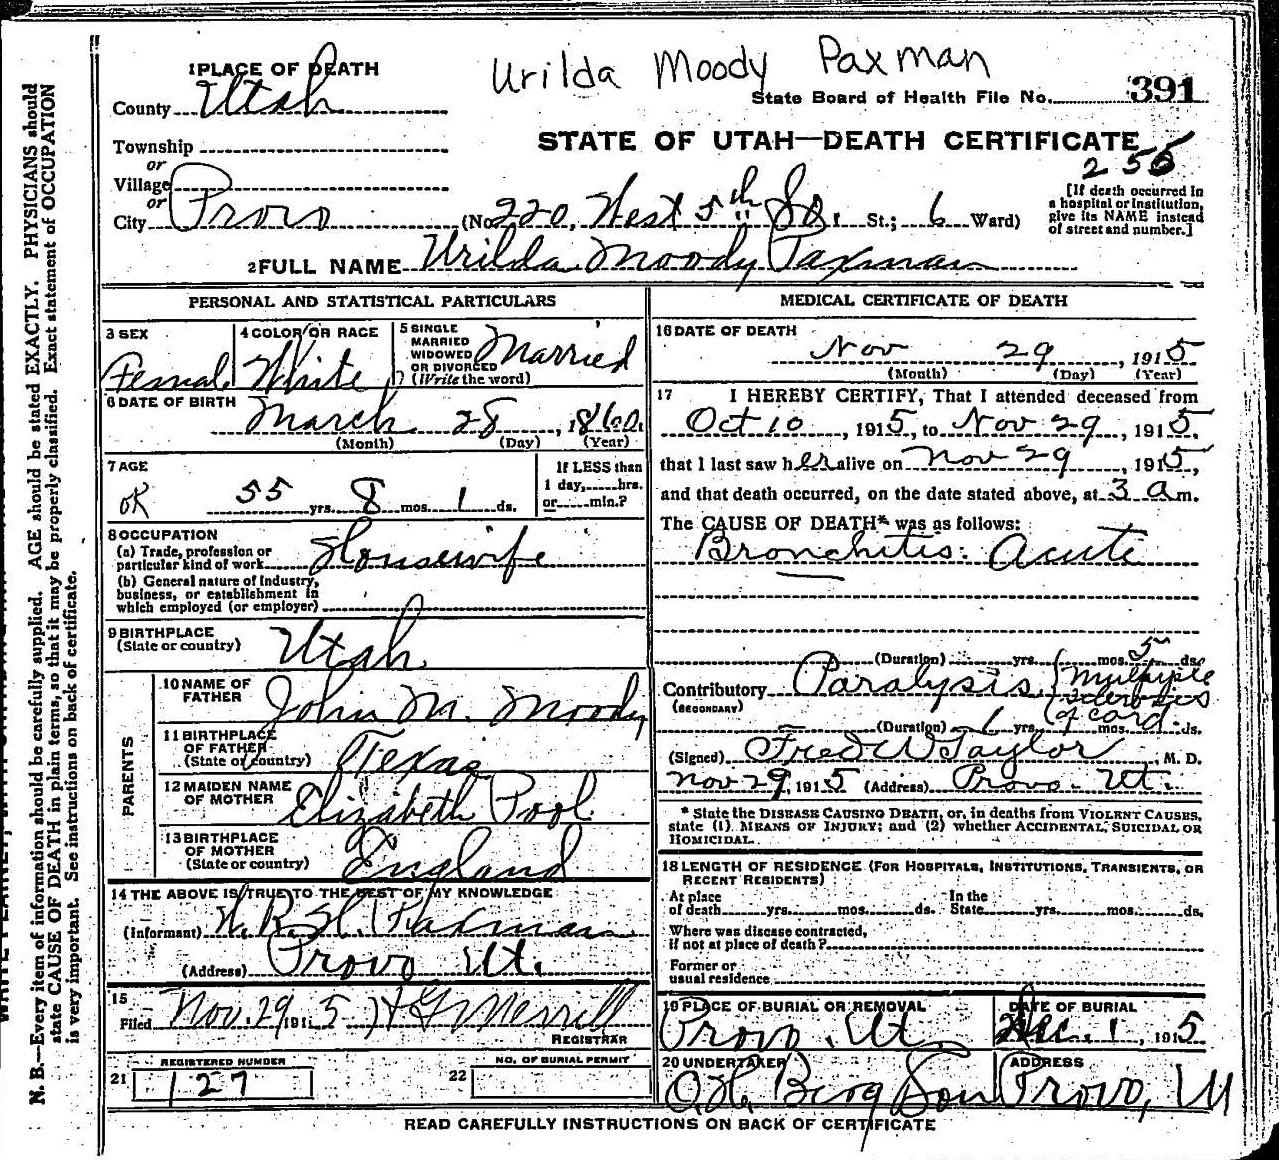 Urilda Moody Paxman
1 PLACE OF DEATH
County Utah
State Board of Health File No. 391
Township
STATE OF UTAH—DEATH CERTIFICATE
or
Village
or
City Provo (No. 220, West 5th So. St.; 6 Ward)
256
[If death occurred in
a hospital or institution,
give its NAME instead
of street and number.]
2 FULL NAME Urilda Moody Paxman
PERSONAL AND STATISTICAL PARTICULARS
3 SEX
Female
4 COLOR OR RACE
White
5 SINGLE
MARRIED
WIDOWED
OR DIVORCED
(Write the word)
Married
6 DATE OF BIRTH
March 28, 1860
(Month) (Day) (Year)
7 AGE
OK 55 yrs. 8 mos. 1 ds.
If LESS than
1 day, hrs.
or min.?
8 OCCUPATION
(a) Trade, profession or
particular kind of work Housewife
(b) General nature of Industry,
business, or establishment in
which employed (or employer)
9 BIRTHPLACE
(State or country) Utah
PARENTS
10 NAME OF
FATHER John M. Moody
11 BIRTHPLACE
OF FATHER
(State or country) Texas
12 MAIDEN NAME
OF MOTHER Elizabeth Pool
13 BIRTHPLACE
OF MOTHER
(State or country) England
14 THE ABOVE IS TRUE TO THE BEST OF MY KNOWLEDGE
(Informant) W. R. H. Paxman
(Address) Provo Ut.
15
Filed Nov. 29 1915 H G Merrill
REGISTRAR
REGISTERED NUMBER
21 127
NO. OF BURIAL PERMIT
22
MEDICAL CERTIFICATE OF DEATH
16 DATE OF DEATH
Nov 29, 1915
(Month) (Day) (Year)
17 I HEREBY CERTIFY, That I attended deceased from
Oct 10, 1915, to Nov 29, 1915,
that I last saw her alive on Nov 29, 1915,
and that death occurred, on the date stated above, at 3 a m.
The CAUSE OF DEATH* was as follows:
Bronchitis: Acute
(Duration) yrs. mos. 5 ds.
Contributory Paralysis (Multiple
(SECONDARY) sclerosis
of cord
(Duration) 6 yrs. mos. ds.
(Signed) Fred W Taylor, M. D.
Nov 29, 1915 (Address) Provo Ut.
* State the DISEASE CAUSING DEATH, or, in deaths from VIOLENT CAUSES,
state (1) MEANS OF INJURY; and (2) whether ACCIDENTAL, SUICIDAL OR
HOMICIDAL.
18 LENGTH OF RESIDENCE (FOR HOSPITALS, INSTITUTIONS, TRANSIENTS, OR
RECENT RESIDENTS)
At place In the
of death yrs. mos. ds. State yrs. mos. ds.
Where was disease contracted,
if not at place of death?
Former or
usual residence
19 PLACE OF BURIAL OR REMOVAL
Provo Ut.
DATE OF BURIAL
Dec. 1, 1915
20 UNDERTAKER
O.H. Berg Son
ADDRESS
Provo, Ut
READ CAREFULLY INSTRUCTIONS ON BACK OF CERTIFICATE
N. B.—Every item of information should be carefully supplied. AGE should be stated EXACTLY. PHYSICIANS should
state CAUSE OF DEATH in plain terms, so that it may be properly classified. Exact statement of OCCUPATION
is very important. See instructions on back of certificate.